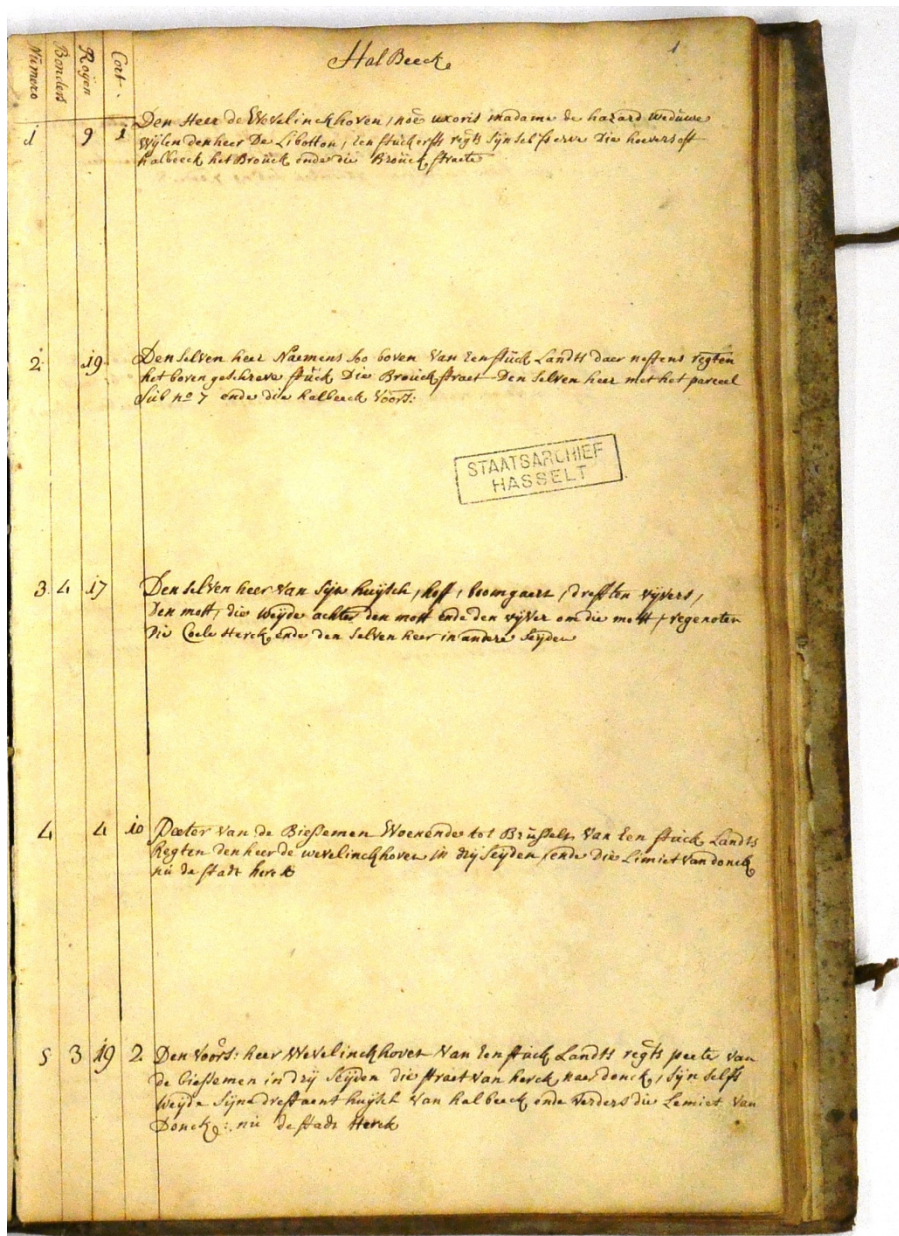 Hal Beeck
1
Numero Bonders Roijen Cort.
1 9 1 Den Heer de Wevelinckhoven, noe uxoris madame de hazard weduwe
wijlen den heer De Libotton, een stuck erffs regts sijn selfs erve die
halbeeck het Broück ende die Broück straete
2. 19 Den selven heer Naemens soo boven van een stück Landts daer neffens regten
het boven geschreve stück Die Broück straet Den selven heer met het parceel
süb no 7 ende die halbeeck voors:
STAATSARCHIEF
HASSELT
3. 4 17 Den selven heer van sijn huijsch, hoff, boomgaert, dreff en vijvers,
den mott, die weijde achter den mott ende den vijver om die mott, regenoten
Die Coele Herck ende den selven heer in andere seijden
4 4 10 Peeter van de Biessemen Woenende tot Brüssels van een stück Landts
Regten den heer de wevelinckhoven in drij seijden ende Die Limiet van donck
nü de stadt herck
5 3 19 2. Den Voors: heer Wevelinckhoven van een stück Landts regts peeter van
de biessemen in drij seijden die straet van herck naer donck, sijn selfs
weijde sijne dreff aent huijsch van halbeeck ende verders die Lemiet van
Donck: nü de stadt Herck